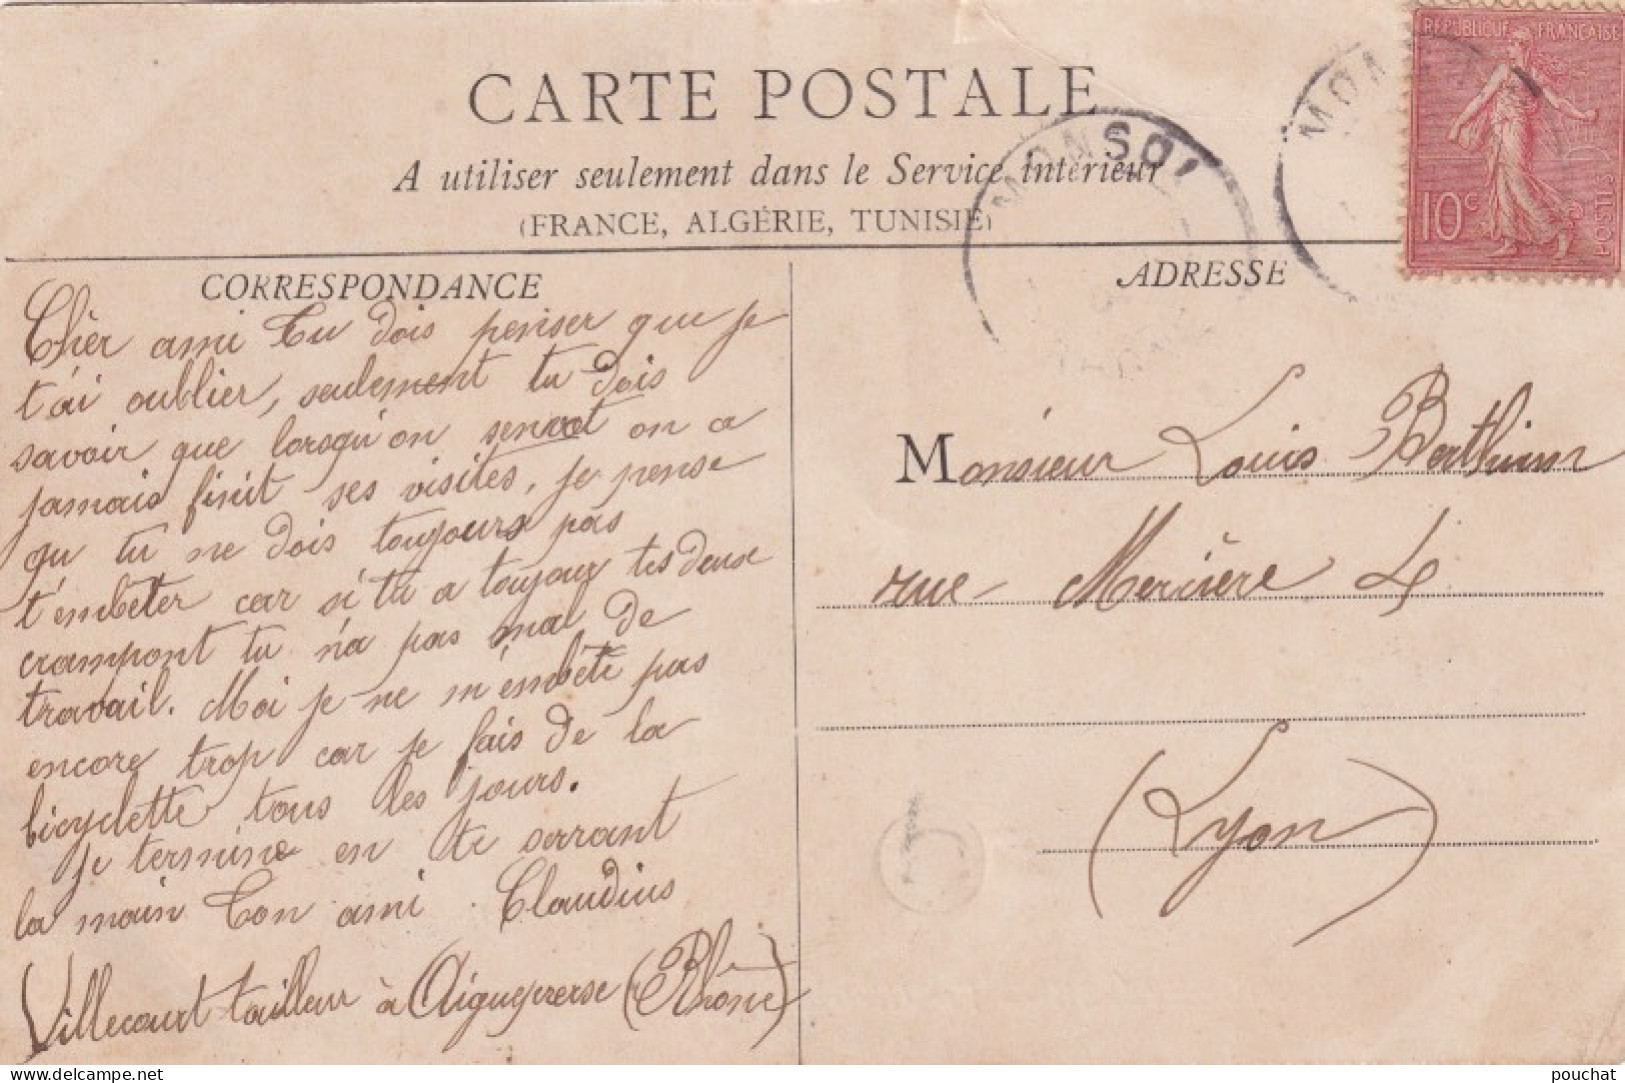 CARTE POSTALE
A utiliser seulement dans le Service intérieur
(FRANCE, ALGÉRIE, TUNISIE)
CORRESPONDANCE
Chèr ami Tu dois penser que je
t'ai oublier, seulement tu dois
savoir que lorsqu'on on a
jamais finit ses visites, je pense
qu tu ne dois toujours pas
t'embêter car si tu a toujour tes deux
crampont tu n'a pas mal de
travail. Moi je ne m'embête pas
encore trop car je fais de la
bicyclette tous les jours.
je termine en te serrant
la main Ton ami. Claudius
Villecourt tailleur à Aigueperse (Rhône)
ADRESSE
Monsieur Louis
rue Mercière
(Lyon)
REPUBLIQUE FRANÇAISE
10c
POSTES
MONSO
pouchat